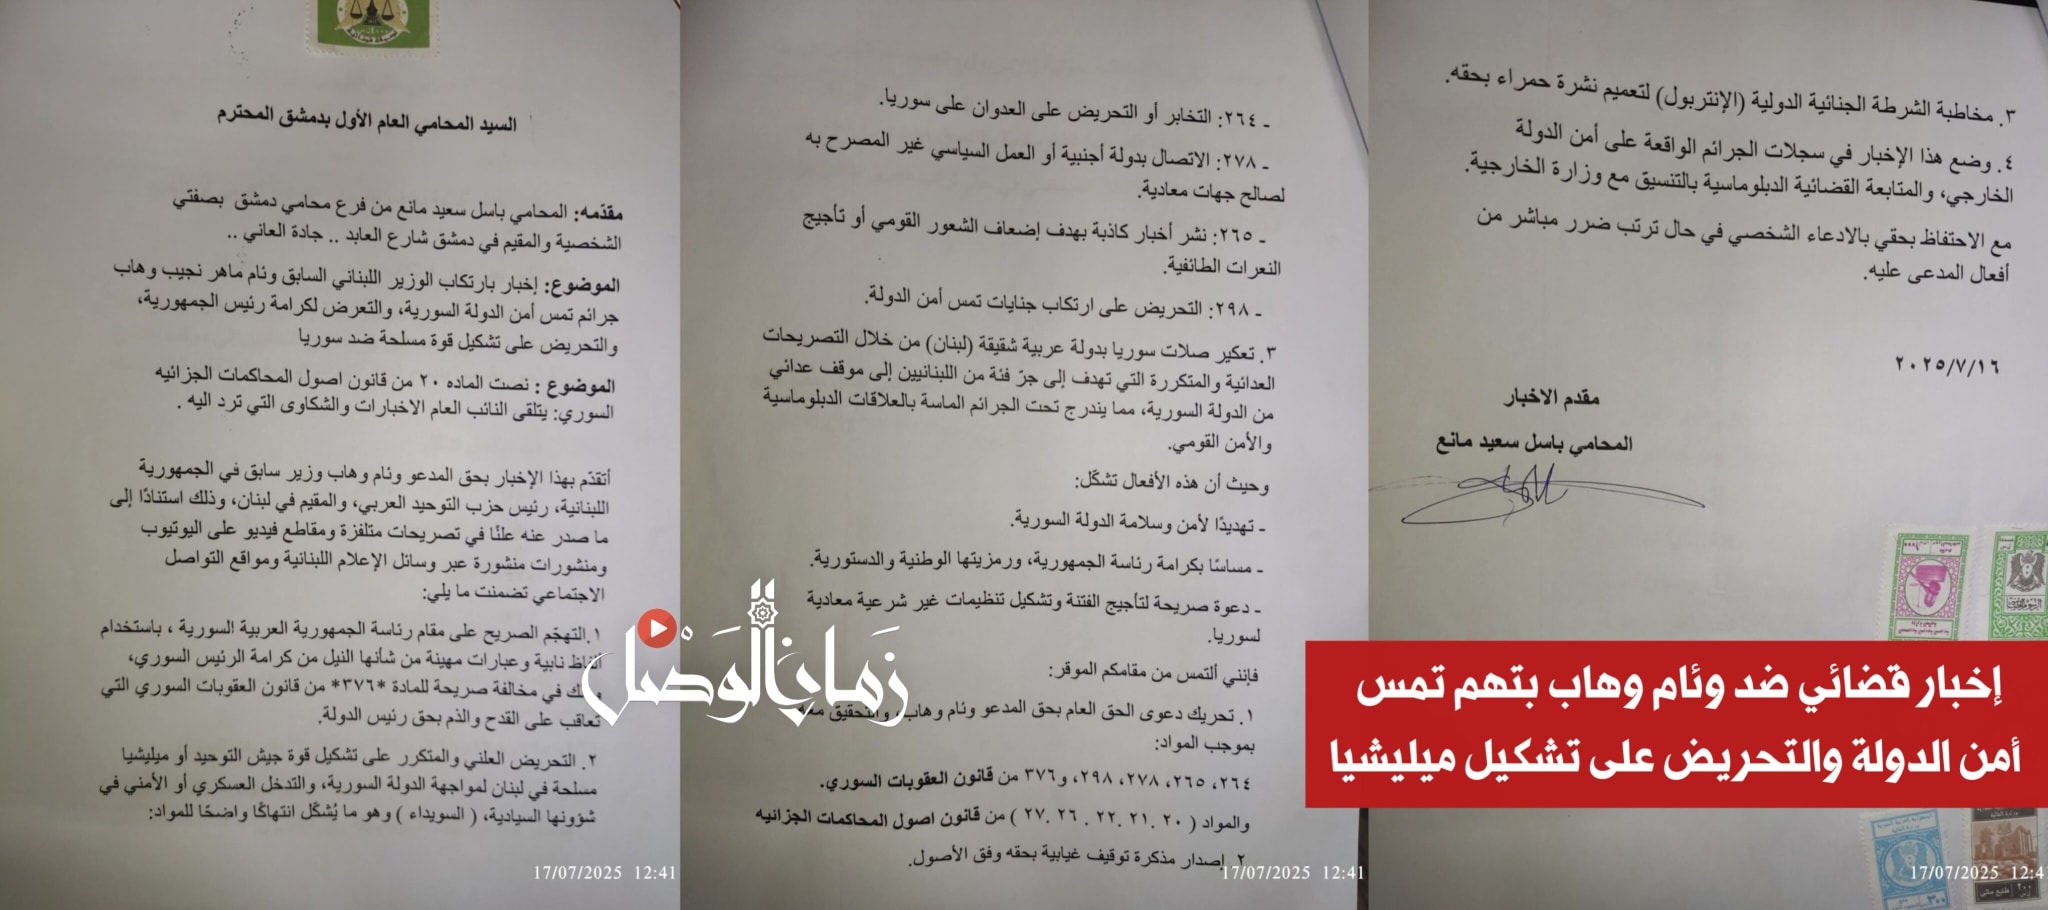 السيد المحامي العام الأول بدمشق المحترم
مقدّمه: المحامي باسل سعيد مانع من فرع محامي دمشق بصفتي
الشخصية والمقيم في دمشق شارع العابد .. جادة العاني ..
الموضوع: إخبار بارتكاب الوزير اللبناني السابق وئام ماهر نجيب وهاب
جرائم تمس أمن الدولة السورية، والتعرض لكرامة رئيس الجمهورية،
والتحريض على تشكيل قوة مسلحة ضد سوريا
الموضوع : نصت الماده ٢٠ من قانون اصول المحاكمات الجزائيه
السوري: يتلقى النائب العام الاخبارات والشكاوى التي ترد اليه .
أتقدّم بهذا الإخبار بحق المدعو وئام وهاب وزير سابق في الجمهورية
اللبنانية، رئيس حزب التوحيد العربي، والمقيم في لبنان، وذلك استنادًا إلى
ما صدر عنه علنًا في تصريحات متلفزة ومقاطع فيديو على اليوتيوب
ومنشورات منشورة عبر وسائل الإعلام اللبنانية ومواقع التواصل
الاجتماعي تضمنت ما يلي:
١.التهجّم الصريح على مقام رئاسة الجمهورية العربية السورية ، باستخدام
ألفاظ نابية وعبارات مهينة من شأنها النيل من كرامة الرئيس السوري،
وذلك في مخالفة صريحة للمادة *٣٧٦* من قانون العقوبات السوري التي
تعاقب على القدح والذم بحق رئيس الدولة.
٢. التحريض العلني والمتكرر على تشكيل قوة جيش التوحيد أو ميليشيا
مسلحة في لبنان لمواجهة الدولة السورية، والتدخل العسكري أو الأمني في
شؤونها السيادية، ( السويداء ) وهو ما يُشكّل انتهاكًا واضحًا للمواد:
17/07/2025 12:41
ـ ٢٦٤: التخابر أو التحريض على العدوان على سوريا.
ـ ٢٧٨: الاتصال بدولة أجنبية أو العمل السياسي غير المصرح به
لصالح جهات معادية.
ـ ٢٦٥: نشر أخبار كاذبة بهدف إضعاف الشعور القومي أو تأجيج
النعرات الطائفية.
ـ ٢٩٨: التحريض على ارتكاب جنايات تمس أمن الدولة.
٣. تعكير صلات سوريا بدولة عربية شقيقة (لبنان) من خلال التصريحات
العدائية والمتكررة التي تهدف إلى جرّ فئة من اللبنانيين إلى موقف عدائي
من الدولة السورية، مما يندرج تحت الجرائم الماسة بالعلاقات الدبلوماسية
والأمن القومي.
وحيث أن هذه الأفعال تشكّل:
ـ تهديدًا لأمن وسلامة الدولة السورية.
ـ مساسًا بكرامة رئاسة الجمهورية، ورمزيتها الوطنية والدستورية.
ـ دعوة صريحة لتأجيج الفتنة وتشكيل تنظيمات غير شرعية معادية
لسوريا.
فإنني ألتمس من مقامكم الموقر:
١. تحريك دعوى الحق العام بحق المدعو وئام وهاب، والتحقيق معه
بموجب المواد:
٢٦٤، ٢٦٥، ٢٧٨، ٢٩٨، و٣٧٦ من قانون العقوبات السوري.
والمواد ( ٢٠ .٢١. ٢٢ . ٢٦. ٢٧ ) من قانون اصول المحاكمات الجزائيه
٢. إصدار مذكرة توقيف غيابية بحقه وفق الأصول.
17/07/2025 12:41
زمان الوصل
٣. مخاطبة الشرطة الجنائية الدولية (الإنتربول) لتعميم نشرة حمراء بحقه.
٤. وضع هذا الإخبار في سجلات الجرائم الواقعة على أمن الدولة
الخارجي، والمتابعة القضائية الدبلوماسية بالتنسيق مع وزارة الخارجية.
مع الاحتفاظ بحقي بالادعاء الشخصي في حال ترتب ضرر مباشر من
أفعال المدعى عليه.
٢٠٢٥/٧/١٦
مقدم الاخبار
المحامي باسل سعيد مانع
إخبار قضائي ضد وئام وهاب بتهم تمس
أمن الدولة والتحريض على تشكيل ميليشيا
٣٠٠
٢٠٠ طابع مالي
17/07/2025 12:41